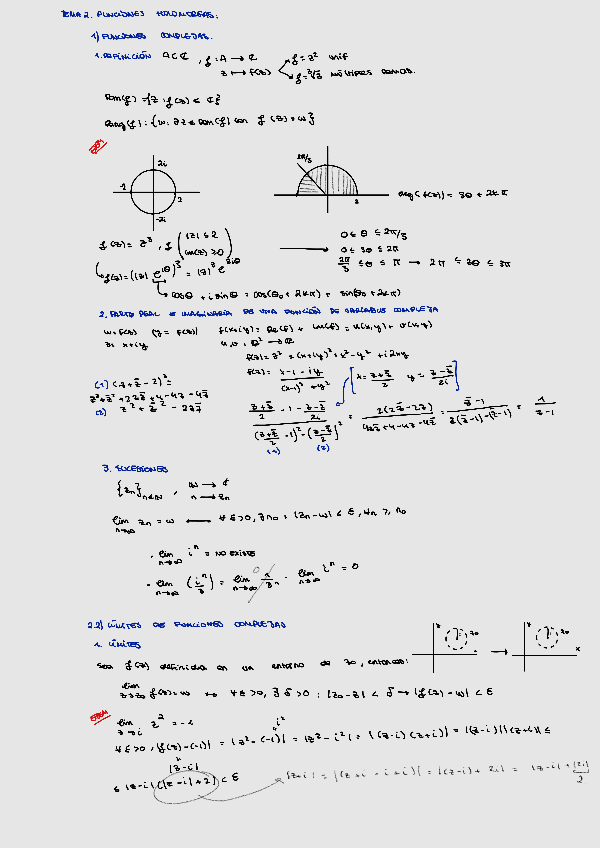 TEMA 2. FUNCIONES HOLOMORFAS:
1) FUNCIONES COMPLEJAS.
1. DEFINICIÓN A⊂ℂ, f: A → ℂ f = z² unif
z ↦ f(z) f = ³√z MÚLTIPLES
Dom(f) = {z : f(z) ∈ ℂ}
Rang(f): {w: ∃z ∈ Dom(f) con f(z) = w}
EJEM
2i
-2
2
-2i
2π/3
2
arg(f(z)) = 3θ + 2kπ
f(z) = z³, f (|z| ≤ 2
Im(z) ≥ 0)
0 ≤ θ ≤ 2π/3
0 ≤ 3θ ≤ 2π
2π/3 ≤ θ ≤ π → 2π ≤ 3θ ≤ 3π
f(z) = (|z| e^{iθ})³ = |z|³ e^{3iθ}
cosθ + i sinθ = cos(θ₀ + 2kπ) + sin(θ₀ + 2kπ)
2. PARTE REAL E IMAGINARIA DE UNA FUNCIÓN DE VARIABLE COMPLEJA
w = f(z) (y = f(x)) f(x+iy) = Re(f) + Im(f) = u(x,y) + v(x,y)
z = x+iy u, v : ℝ² → ℝ
f(z) = z² = (x+iy)² = x² - y² + i2xy
f(z) = (x-1-iy)/((x-1)² + y²) [x = (z+z̄)/2 y = (z-z̄)/2i]
(1) (z+z̄-2)² =
z²+z̄²+2zz̄+4-4z-4z̄
(2) z²+z̄²-2zz̄
((z+z̄)/2 - 1 - (z-z̄)/2i)/(((z+z̄)/2 - 1)² - ((z-z̄)/2)²) = 2(2z̄-2)/(4zz̄+4-4z-4z̄) = (z̄-1)/(z(z̄-1)-(z̄-1)) = 1/(z-1)
(1) (2)
3. SUCESIONES
{zₙ}ₙ∈ℕ, ℕ → ℂ
n → zₙ
lim n→∞ zₙ = w ⟷ ∀ε>0, ∃n₀ : |zₙ-w| < ε, ∀n ≥ n₀
· lim n→∞ iⁿ = NO EXISTE
· lim n→∞ (iⁿ/3) = lim n→∞ 1/3ⁿ · lim n→∞ iⁿ = 0
2.2) LÍMITES DE FUNCIONES COMPLEJAS
1. LÍMITES
Sea f(z) definida en un entorno de z₀, entonces:
lim z→z₀ f(z) = w ↔ ∀ε>0, ∃δ>0 : |z₀-z| < δ → |f(z)-w| < ε
EJEM
lim z→i z² = -1
i²
∀ε>0, |f(z)-(-1)| = |z²-(-1)| = |z²-i²| = |(z-i)(z+i)| = |(z-i)||(z+i)| ≤
|z-i|
≤ |z-i|(|z-i|+2) < ε
|z+i| = |(z+i-i+i)| = |(z-i)+2i| = |z-i|+|2i|
2